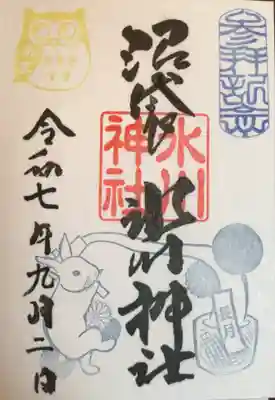 参拝記念
沼袋
氷川神社
氷川
神社
令和七年九月二日